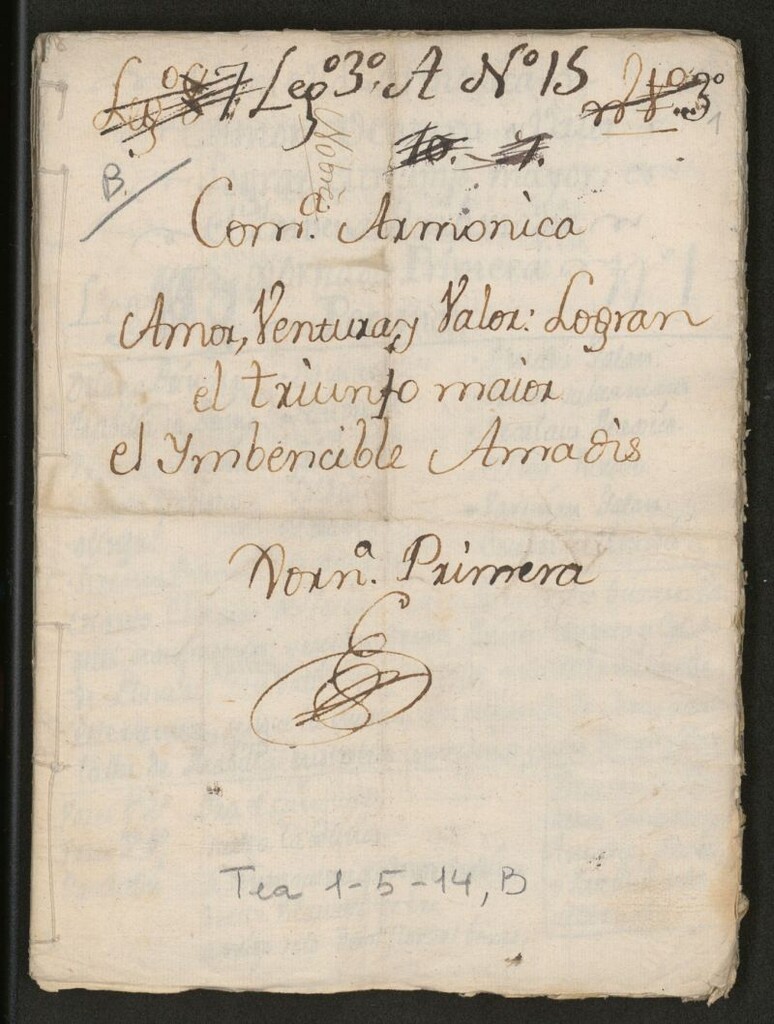 Leg.º 3.º A Nº 15
3º
B.
1
Com.ª Armonica
Amor, Ventura, y Valor: Logran
el triunfo maior
el Ymbencible Amadis
Jorn.ª Primera
Tea 1-5-14, B